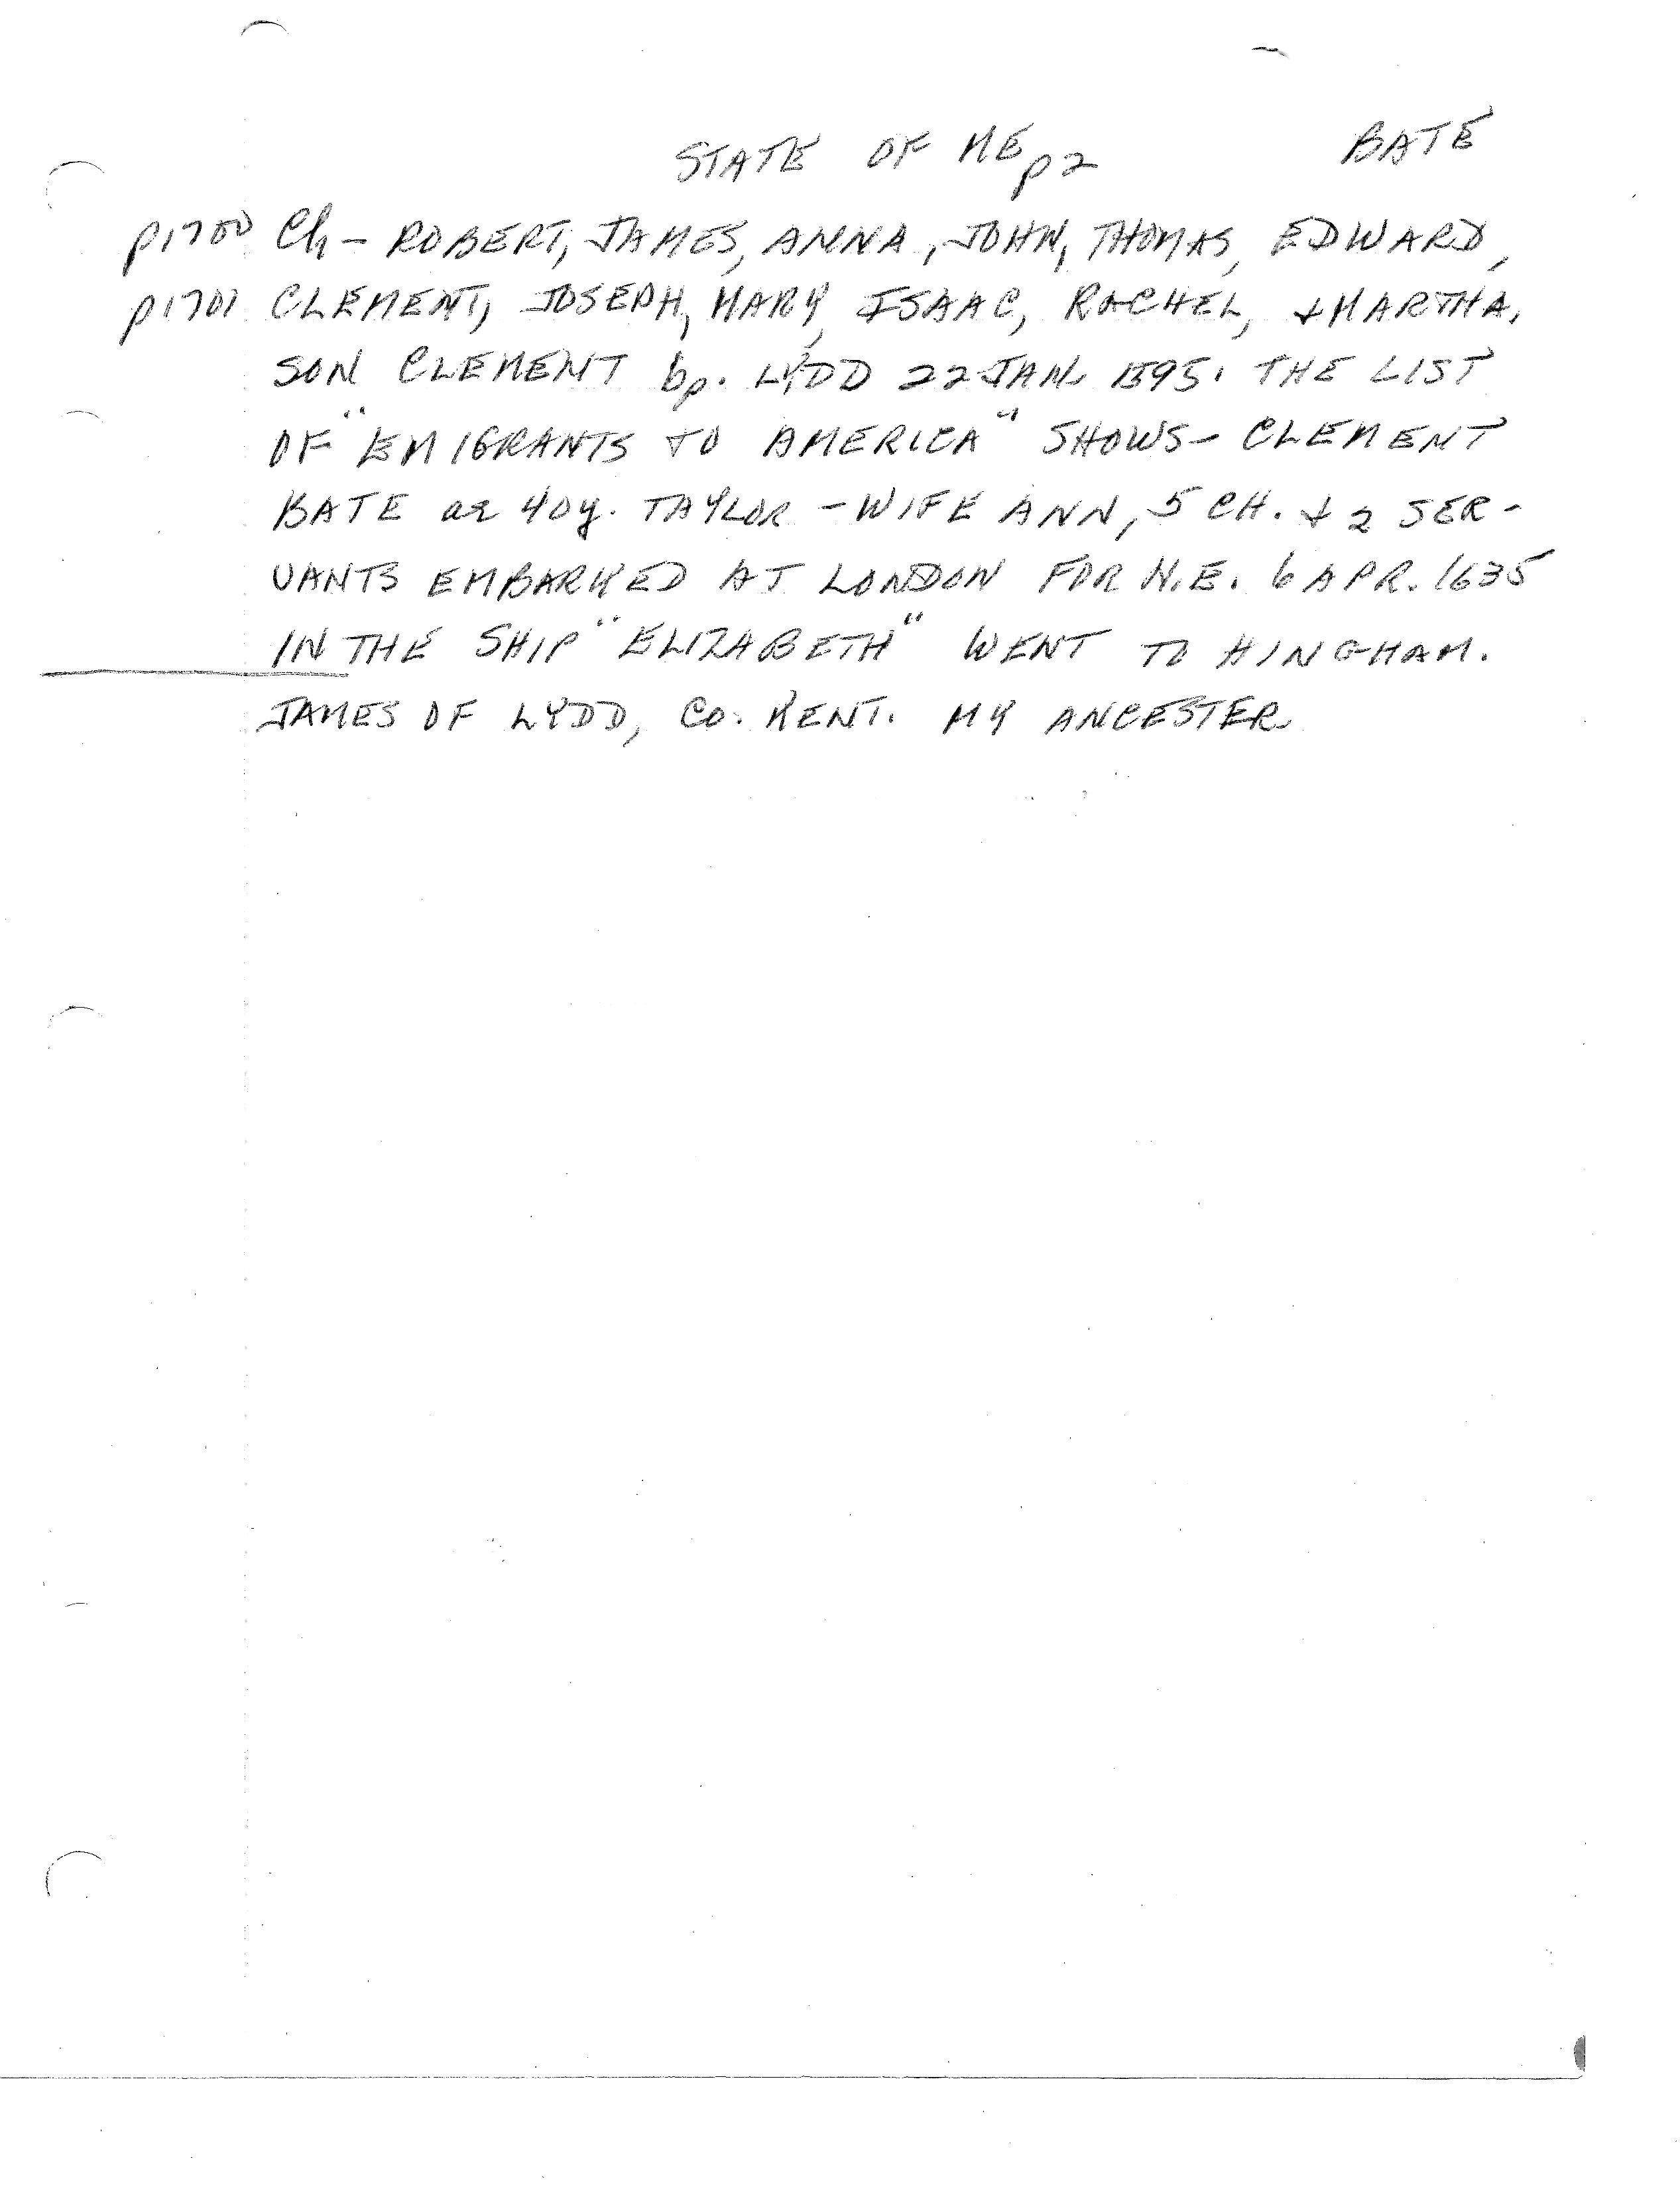 STATE OF ME p2 BATE
p1700 Ch - ROBERT, JAMES, ANNA, JOHN, THOMAS, EDWARD,
p1701 CLEMENT, JOSEPH, MARY, ISAAC, RACHEL, + MARTHA.
SON CLEMENT bp. LYDD 22 JAN. 1595. THE LIST
OF "EMIGRANTS TO AMERICA" SHOWS - CLEMENT
BATE ae 40y. TAYLOR - WIFE ANN, 5 CH. + 2 SER-
VANTS EMBARKED AT LONDON FOR N.E. 6 APR. 1635
IN THE SHIP "ELIZABETH" WENT TO HINGHAM.
JAMES OF LYDD, CO. KENT. MY ANCESTER